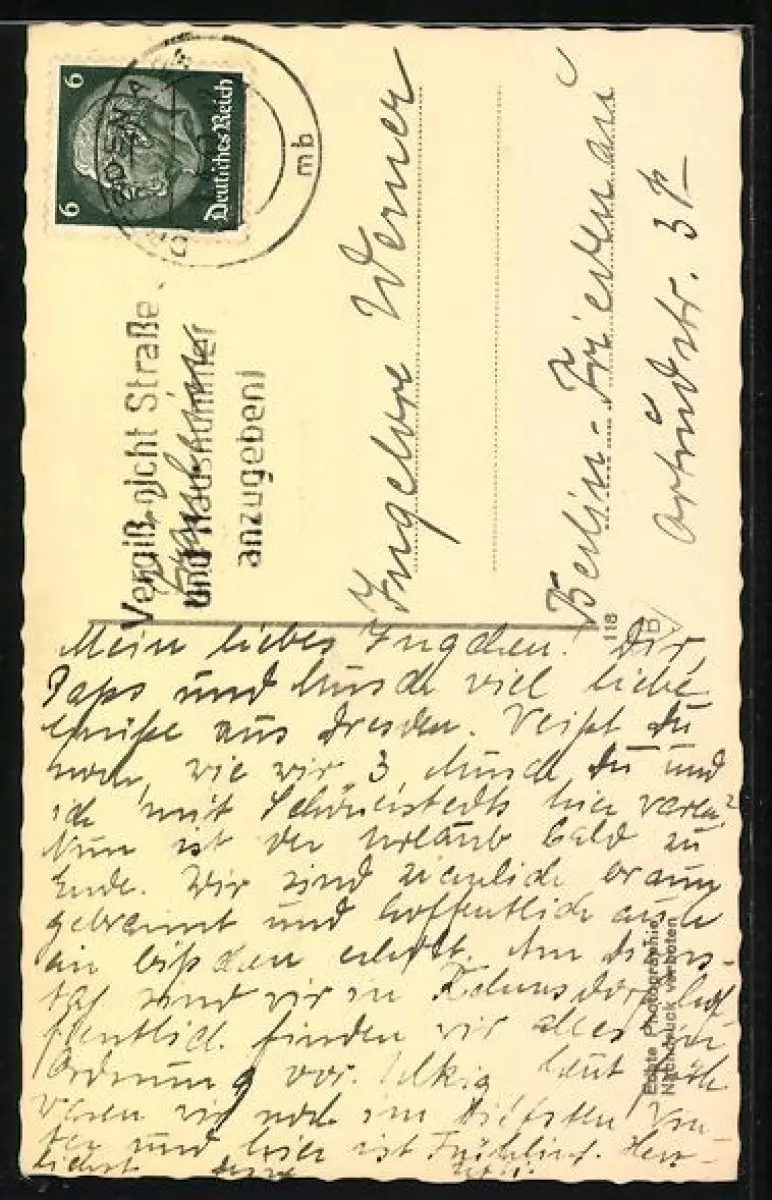 6
6
Deutsches Reich
mb
Vergiß nicht Straße
und Hausnummer
anzugeben!
Ingelore Werner
Berlin-Friedenau
str. 37
118
B
Echte Photographie
Nachdruck verboten
Mein liebes Ingchen! Dir,
Paps und Musch viel liebe
Grüße aus Dresden. Weißt Du
noch, wie wir 3, Musch Du und
ich mit hier waren?
Nun ist der Urlaub bald zu
Ende. Wir sind ziemlich braun
gebrannt und hoffentlich auch
ein bißchen erholt. Am Diens-
tag sind wir in hof-
fentlich finden wir alles in
Ordnung vor. Ulkig, heut früh
waren wir noch im tiefsten Win-
ter und hier ist Frühling. Herz-
lichst